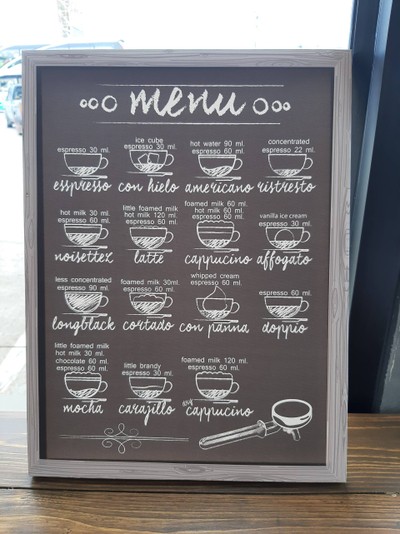 menu
espresso 30 ml.
esspresso
ice cube
espresso 30 ml.
con hielo
hot water 90 ml.
espresso 60 ml.
americano
concentrated
espresso 22 ml.
ristresto
hot milk 30 ml.
espresso 60 ml.
noisettez
little foamed milk
hot milk 120 ml.
espresso 60 ml.
latte
foamed milk 60 ml.
hot milk 60 ml.
espresso 60 ml.
cappuccino
vanilla ice cream
espresso 30 ml.
affogato
less concentrated
espresso 90 ml.
longblack
foamed milk 30ml.
espresso 60 ml.
cortado
whipped cream
espresso 60 ml.
con panna
espresso 60 ml.
doppio
little foamed milk
hot milk 30 ml.
chocolate 60 ml.
espresso 60 ml.
mocha
little brandy
espresso 30 ml.
carajillo
foamed milk 120 ml.
espresso 60 ml.
dry cappucino